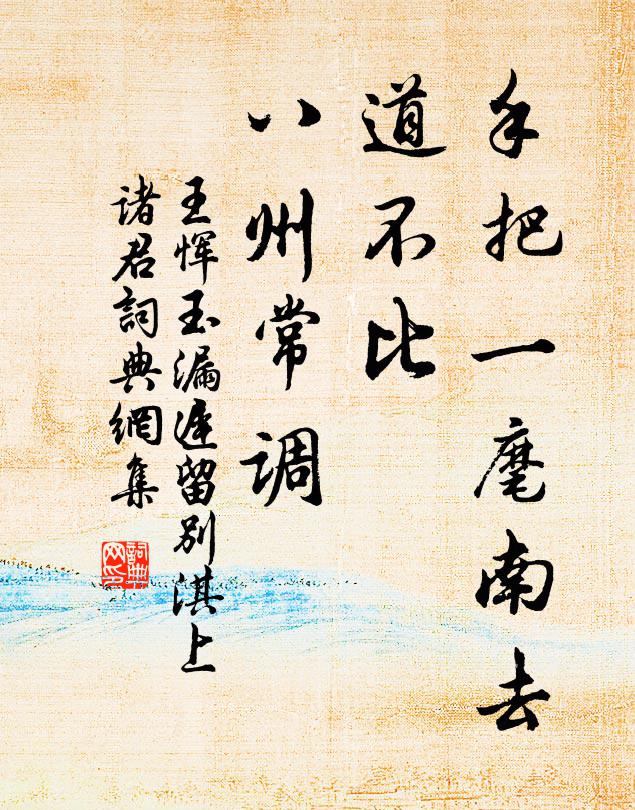 手把一麾南去
道不比
八州常调
王恽玉漏遲留别淇上
诸君詞典網集
詞典网印